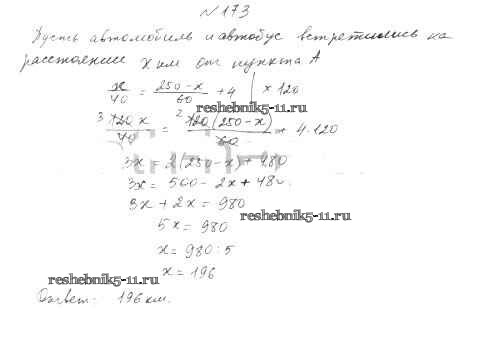 № 173
Пусть автомобиль и автобус встретились на
расстоянии x км от пункта A
x/40 = (250 - x)/60 + 4 | × 120
reshebnik5-11.ru
3 120x/40 = 2 120(250 - x)/60 + 4 · 120
3x = 2(250 - x) + 480
3x = 500 - 2x + 480
3x + 2x = 980
reshebnik5-11.ru
5x = 980
x = 980 : 5
reshebnik5-11.ru
x = 196
Ответ: 196 км.